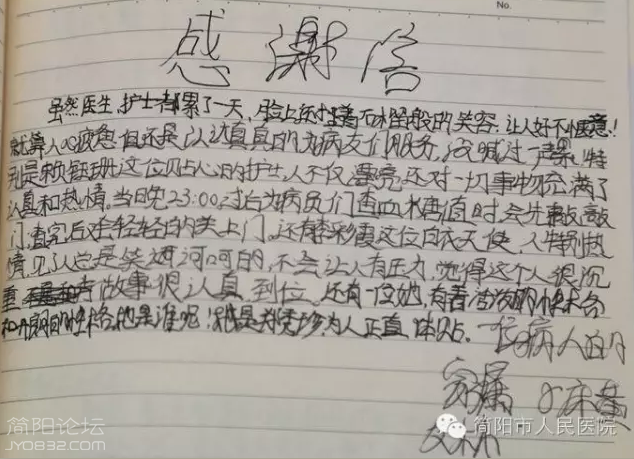 No.
感谢信
虽然医生、护士都累了一天,脸上还挂着石榴般的笑容.让人好不惬意!
就算人以疲惫但还是认认真真的为病友们服务,没喊过一声累!特
别是赖钰珊这位贴心的护士,人不仅漂亮还对一切事物充满了
认真和热情。当日晚23:00过台为病员们查血糖值时,会先敲敲
门,查完后在轻轻的关上门。还有李彩霞这位白衣天使,人特别热
情,见人总是笑

河呵的,不会让人有压力,觉得这个人很沉
重 做事很认真,到位。还有一位她,有着活泼的性格
和开朗的性格,她是谁呢!她是 珍,为人正直 体贴。一位病人的
家属
床
简阳论坛
JY0832.com
简阳市人民医院